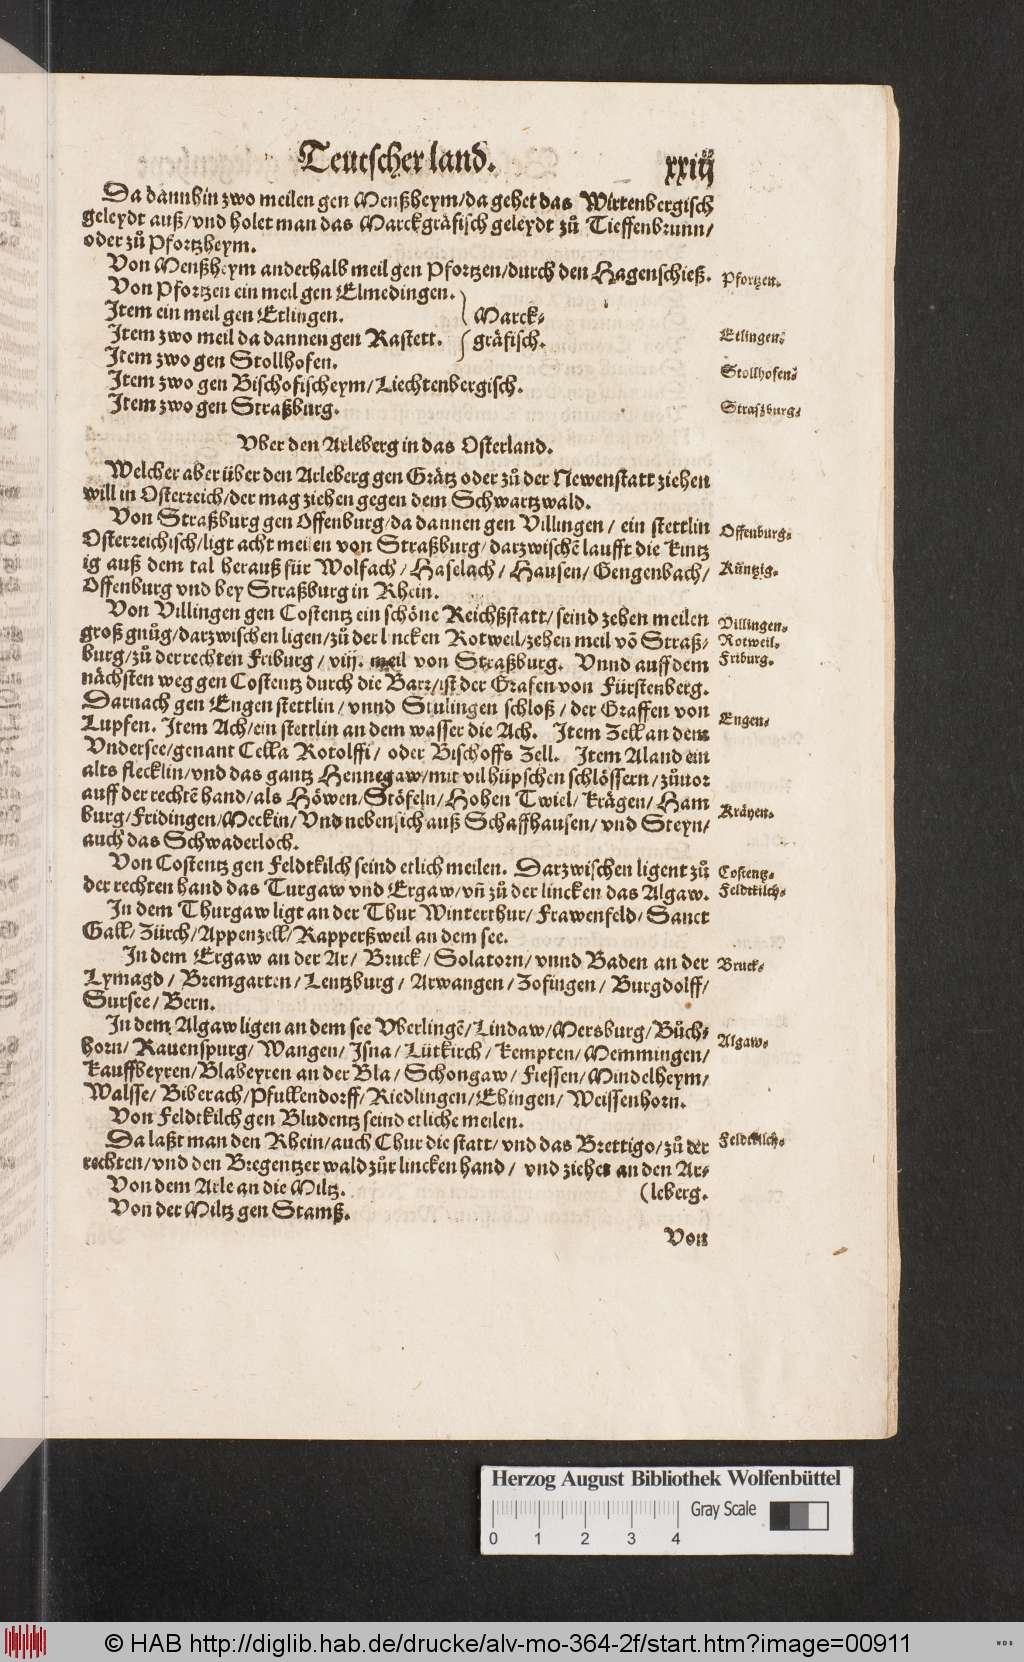 Teutscher land.
xxiij
Da dannhin zwo meilen gen Menßheym/da gehet das Wirtenbergisch
geleydt auß/vnd holet man das Marckgräfisch geleydt zů Tieffenbrunn/
oder zů Pfortzheym.
Von Menßheym anderhalb meil gen Pfortzen/durch den Hagenschieß.
Pfortzen.
Von Pfortzen ein meil gen Elmedingen.
Item ein meil gen Etlingen.
Marck-
Item zwo meil da dannen gen Rastett.
gräfisch.
Etlingen.
Item zwo gen Stollhofen.
Stollhofen.
Item zwo gen Bischofischeym/Liechtenbergisch.
Item zwo gen Straßburg.
Straßburg.
Vber den Arleberg in das Osterland.
Welcher aber über den Arleberg gen Grätz oder zů der Newenstatt ziehen
will in Osterreich/der mag ziehen gegen dem Schwartzwald.
Von Straßburg gen Offenburg/da dannen gen Villingen/ ein stettlin
Offenburg.
Osterreichisch/ligt acht meilen von Straßburg/darzwischē laufft die Kintz
ig auß dem tal herauß für Wolfach/Haselach/ Hausen/Gengenbach/
Küntzig.
Offenburg vnd bey Straßburg in Rhein.
Von Villingen gen Costentz ein schöne Reichßstatt/seind zehen meilen
Villingen.
groß gnůg/darzwischen ligen/zů der lincken Rotweil/zehen meil vō Straß/
Rotweil.
burg/zů der rechten Friburg/viij. meil von Straßburg. Vnnd auff dem
Friburg.
nächsten weg gen Costentz durch die Barr/ist der Grafen von Fürstenberg.
Darnach gen Engen stettlin/vnnd Stulingen schloß/der Graffen von
Engen.
Lupfen. Item Ach/ein stettlin an dem wasser die Ach. Item Zell an dem
Vndersee/genant Cella Rotolffi/ oder Bischoffs Zell. Item Aland ein
alts flecklin/vnd das gantz Hennegaw/mit vil hüpschen schlössern/zůuor
auff der rechtē hand/als Höwen/Stöfeln/Hohen Twiel/Krägen/Ham
Kräyen.
burg/Fridingen/Meckin/Vnd neben sich auß Schaffhausen/vnd Steyn/
auch das Schwaderloch.
Von Costentz gen Feldtkilch seind etlich meilen. Darzwischen ligent zů
Costentz.
der rechten hand das Turgaw vnd Ergaw/vñ zů der lincken das Algaw.
Feldtkilch.
In dem Thurgaw ligt an der Thur Winterthur/Frawenfeld/Sanct
Gall/Zürch/Appenzell/Rapperßweil an dem see.
In dem Ergaw an der Ar/ Bruck/Solatorn/vnnd Baden an der
Bruck.
Lymagd/ Bremgarten/Lentzburg/ Arwangen/Zofingen/Burgdolff/
Sursee/Bern.
In dem Algaw ligen an dem see Vberlingē/Lindaw/Mersburg/Bůch-
horn/Rauenspurg/Wangen/Isna/Lütkirch/Kempten/Memmingen/
Algaw.
Kauffbeyren/Blabeyren an der Bla/Schongaw/Fiessen/Mindelheym/
Walsse/Biberach/Pfullendorff/Riedlingen/Ehingen/Weissenhorn.
Von Feldtkilch gen Bludentz seind etliche meilen.
Da laßt man den Rhein/auch Chur die statt/vnd das Brettigo/zů der
Feldtkilch.
rechten/vnd den Bregentzer wald zůr lincken hand/ vnd ziehet an den Ar-
Von dem Arle an die Miltz.
(leberg.
Von der Miltz gen Stamß.
Von
Herzog August Bibliothek Wolfenbüttel
0 1 2 3 4
Gray Scale
© HAB http://diglib.hab.de/drucke/alv-mo-364-2f/start.htm?image=00911